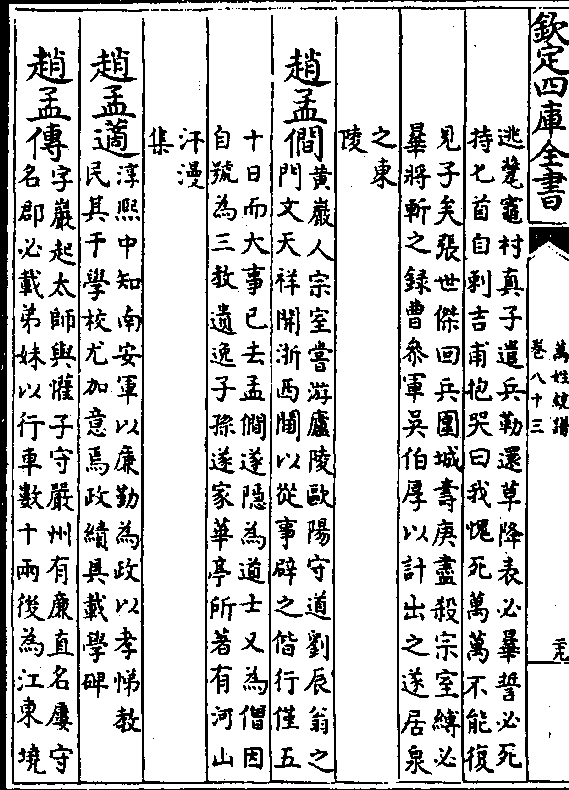 欽定四庫全書
萬姓統譜
卷八十三
逃竈村真子遣兵勒還草降表必畢誓必死
持匕首自剄吉甫抱哭曰我愧死萬萬不能復
見子矣張世傑回兵圍城壽庚盡殺宗室縛必
畢將斬之録曹參軍吳伯厚以計出之遂居泉
之東
陵
趙孟僩
黄巖人宗室嘗游廬陵歐陽守道劉辰翁之
門文天祥開浙西閫以從事辟之偕行僅五
十日而大事已去孟僩遂隱為道士又為僧因
自號為三教遺逸子孫遂家華亭所著有河山
汗漫
集
趙孟
淳熙中知南安軍以廉勤為政以孝悌教
民其于學校尤加意焉政績具載學碑
趙孟傳
字巖起太師與懽子守嚴州有廉直名屢守
名郡必載弟妹以行車數十兩後為江東境